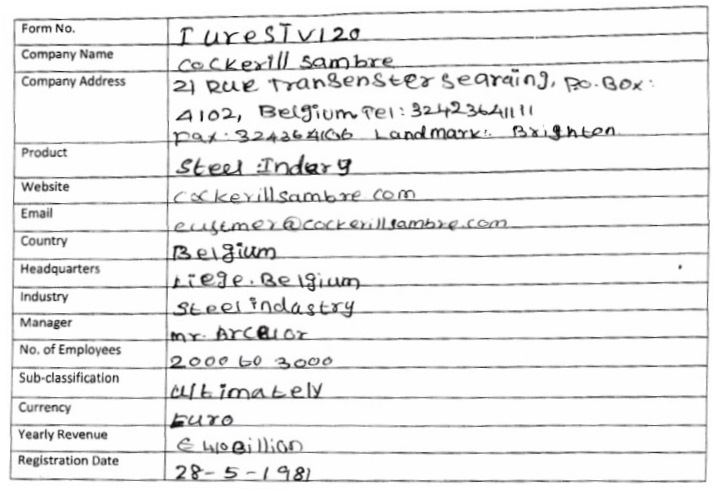 Form No. IuresTV120
Company Name Cockerill Sambre
Company Address 21 Rue Transenster Searaing, Po.Box:
4102, Belgium Tel: 32423641111
Fax: Landmark: Brighton
Product Steel Indary
Website cockerillsambre.com
Email custmer@cockerillsambre.com
Country Belgium
Headquarters Liege. Belgium
Industry Steel indastry
Manager mr. Arcelor
No. of Employees 2000 to 3000
Sub-classification Ultimately
Currency Euro
Yearly Revenue € Billian
Registration Date 28-5-1981